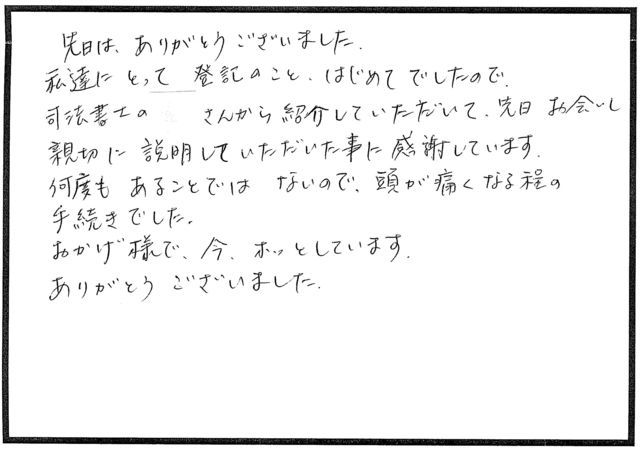 先日は、ありがとうございました。
私達にとって 登記のこと、はじめてでしたので、
司法書士の さんから紹介していただいて、先日 お会いし
親切に説明していただいた事に感謝しています。
何度も あることでは ないので、頭が痛くなる程の
手続きでした。
おかげ様で、今、ホッとしています。
ありがとう ございました。